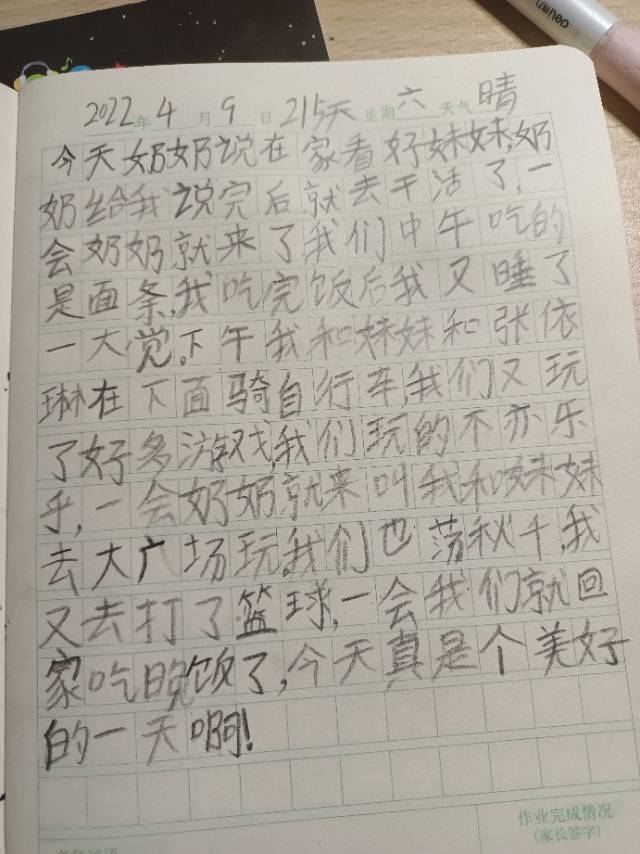 2022年4月9日 215天 星期六 天气晴
今天奶奶说在家看好妹妹,奶
奶给我说完后就去干活了,一
会奶奶就来了我们中午吃的
是面条,我吃完饭后我又睡了
一大觉。下午我和妹妹和张依
琳在下面骑自行车,我们又玩
了好多游戏,我们玩的不亦乐
乎,一会奶奶就来叫我和妹妹
去大广场玩,我们也荡秋千,我
又去打了篮球,一会我们就回
家吃晚饭了,今天真是个美好
的一天啊!
作业完成情况
(家长签字)